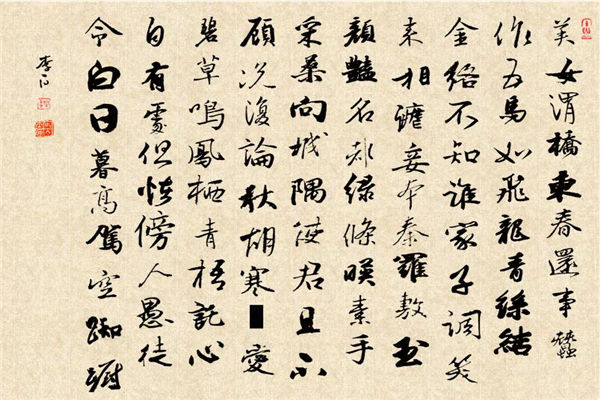 美女渭橋東春還事蠶
作五馬如飛龍青絲結
金絡不知誰家子調笑
來相謔妾本秦羅敷玉
顏豔名都綠條映素手
采桑向城隅使君且不
顧況復論秋胡寒■愛
碧草鳴鳳栖青梧託心
自有處但怪傍人愚徒
令白日暮高駕空踟躕
李白